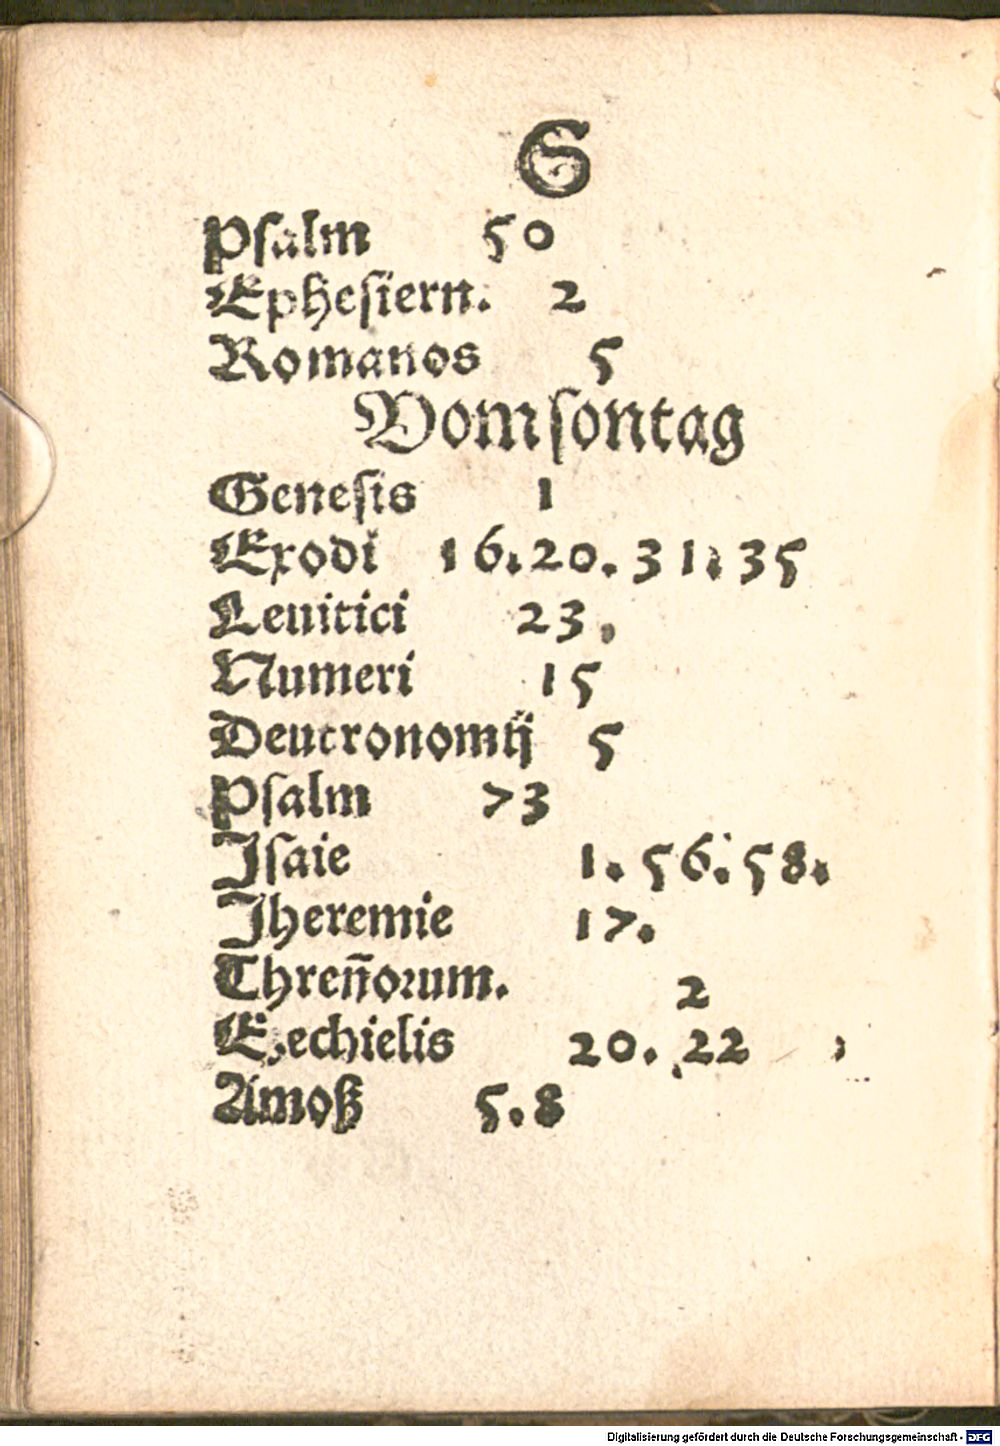 S
Psalm 50
Ephesiern. 2
Romanos 5
Vom sontag
Genesis 1
Exodi 16. 20. 31. 35
Leuitici 23.
Numeri 15
Deucronomij 5
Psalm 73
Jsaie 1. 56. 58.
Jheremie 17.
Threñoꝛum. 2
Ezechielis 20. 22
Amoß 5. 8
Digitalisierung gefördert durch die Deutsche Forschungsgemeinschaft - DFG